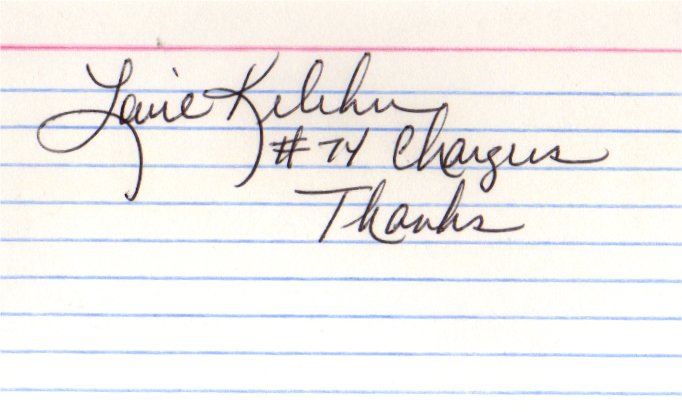 Louie Kelcher
#74 Chargers
Thanks